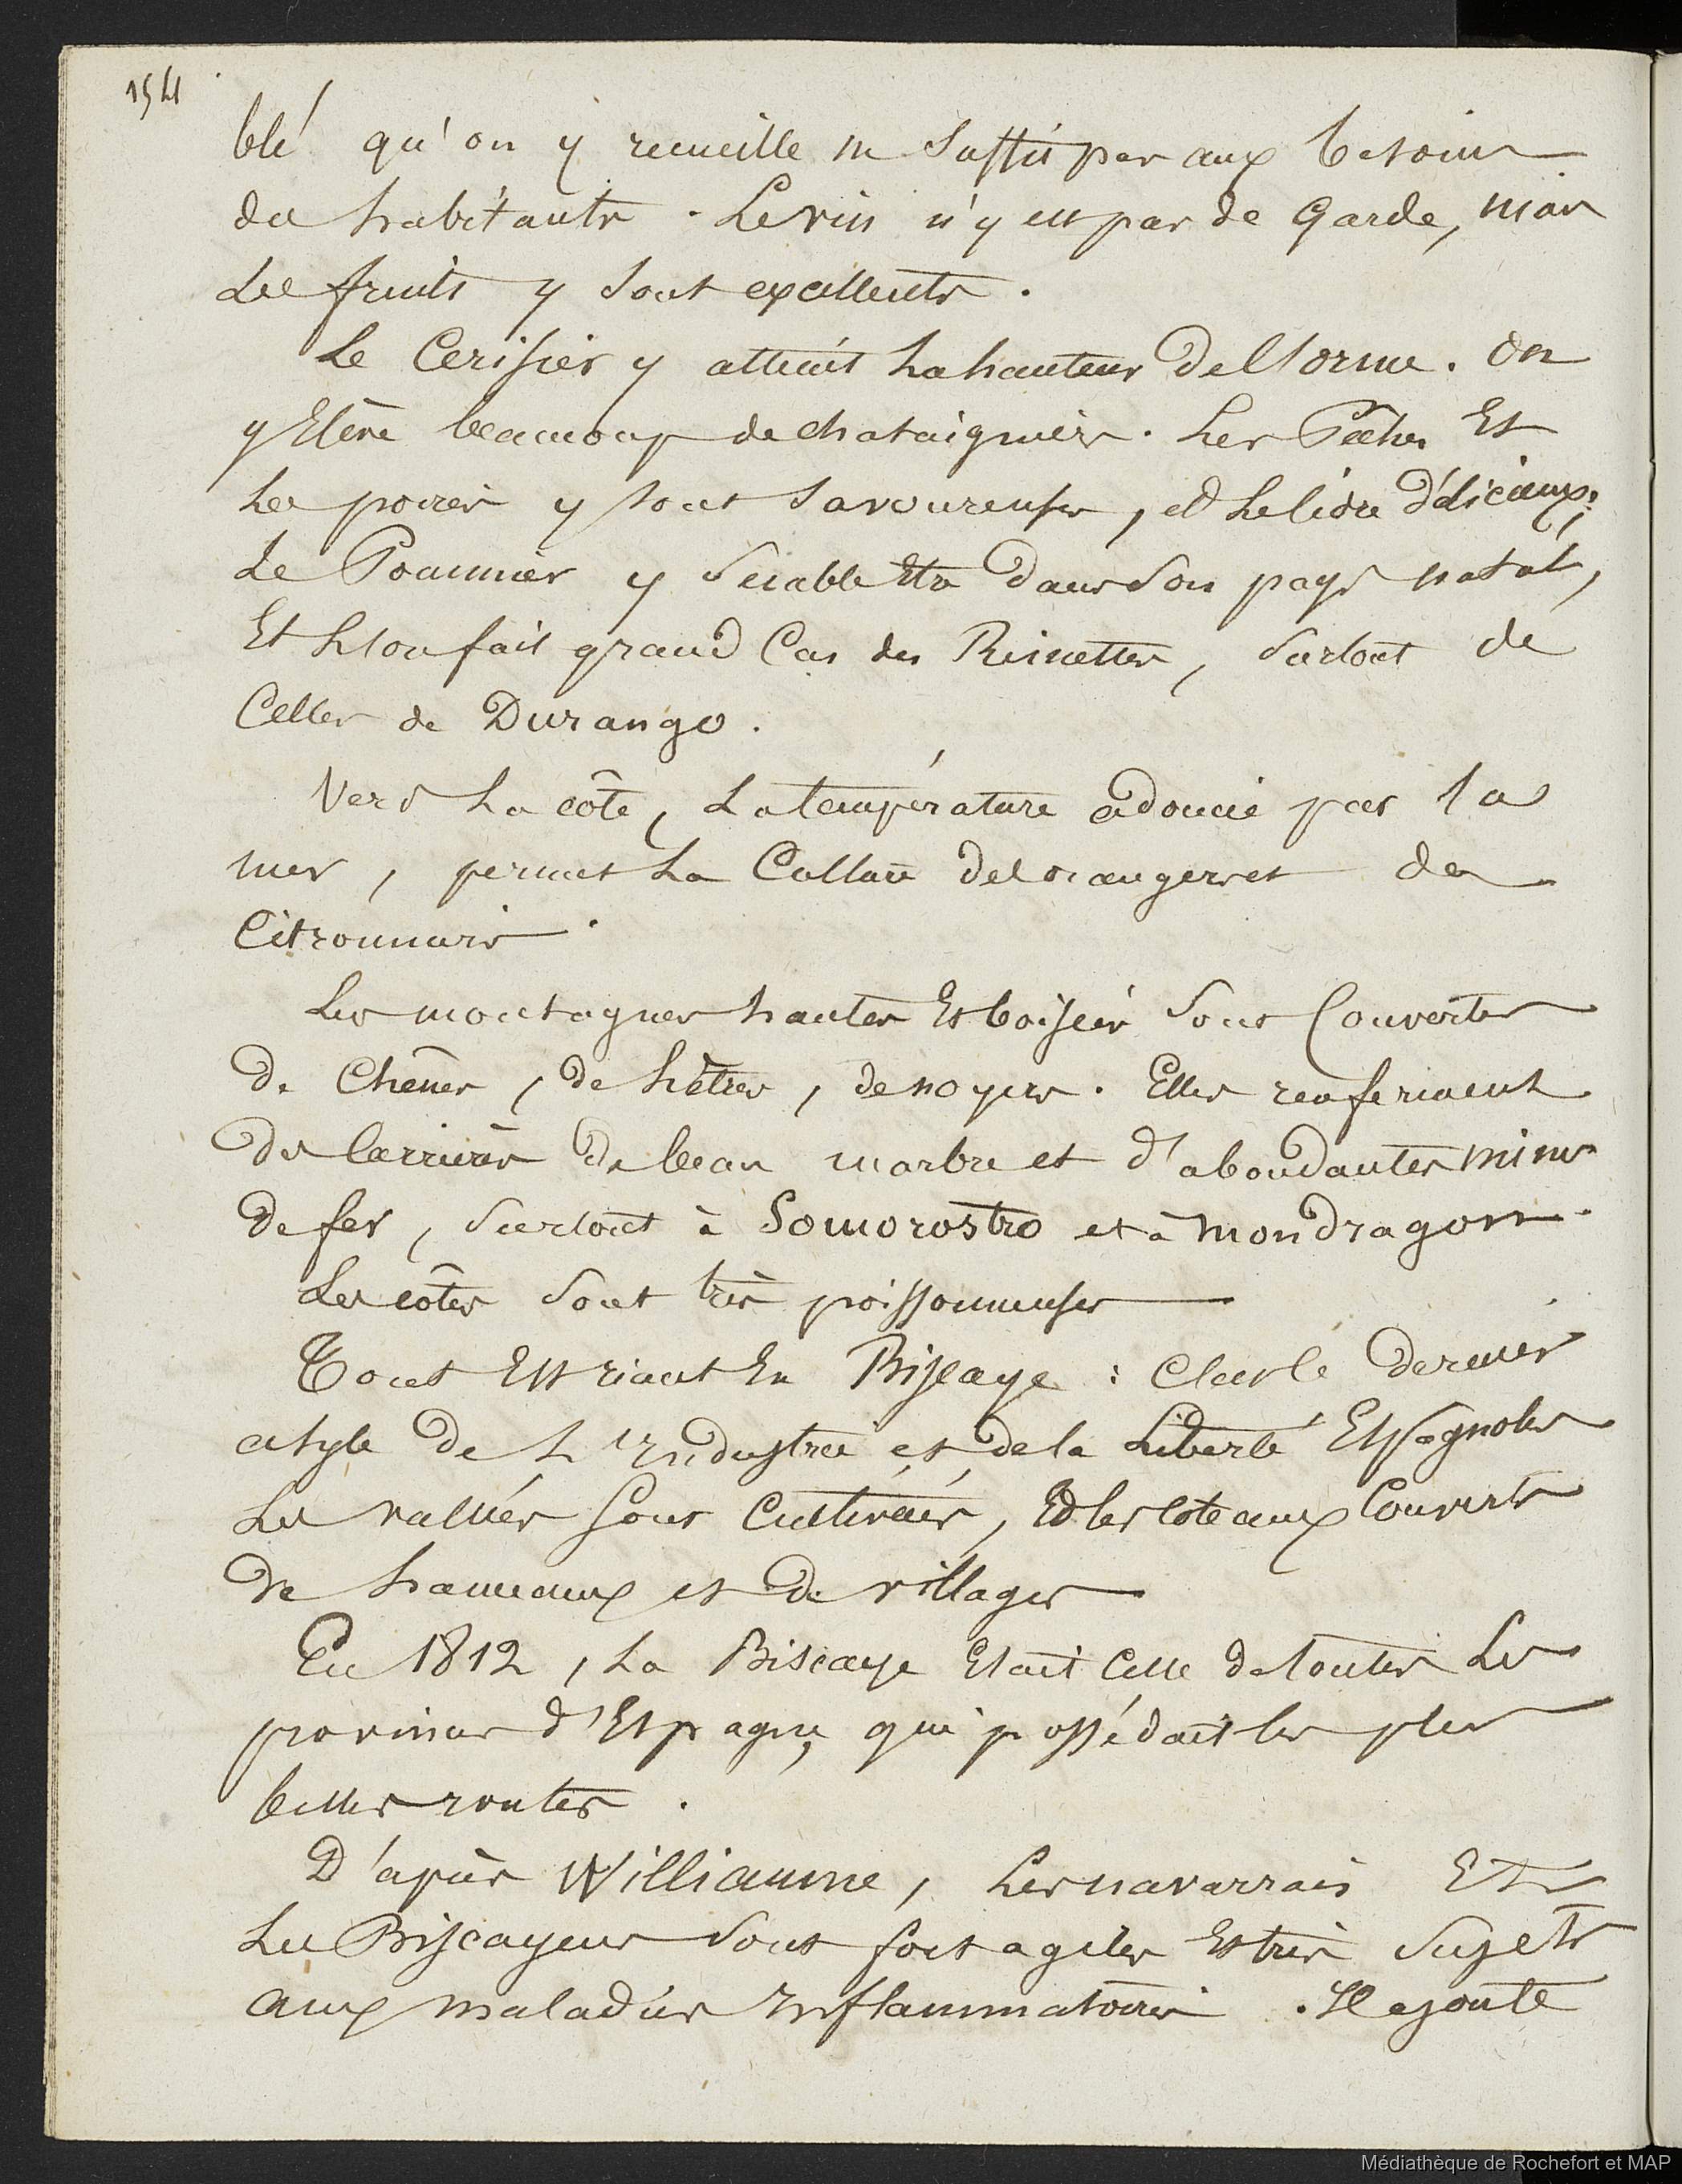 154
blé qu'on y recueille ne suffit pas aux besoins
des habitants. Le vin n'y est pas de garde, mais
les fruits y sont excellents.
Le Cerisier y atteint la hauteur de l'orme. On
y Elève beaucoup de chataigniers. Les Pêches Et
les poires y sont savoureuses, et le cidre délicieux;
Le Pommier y semble Etre dans son pays natal,
Et l'on fait grand Cas des Reinettes, surtout de
Celles de Durango.
Vers la côte, la température adoucie par la
mer, permet la Culture des orangers et des
Citronniers.
Les montagnes hautes Et boisées sont Couvertes
de Chênes, de hêtres, de noyers. Elles renferment
des Carrières de beau marbre et d'abondantes mines
de fer, surtout à Somorostro et à Mondragon.
Les côtes sont très poissonneuses
Tout Est riant En Biscaye : C'est le dernier
asyle de L'Industrie et de la Liberté Espagnoles
Les vallées sont Cultivées, Et les coteaux Couverts
de hameaux et de villages
En 1812, la Biscaye Etait Celle de toutes Les
provinces d'Espagne, qui possédait les plus
belles routes.
D'après Williaume, Les navarrais Et
Les Biscayens sont fort agiles Et très sujets
aux maladies Inflammatoires. Il ajoute
Médiathèque de Rochefort et MAP